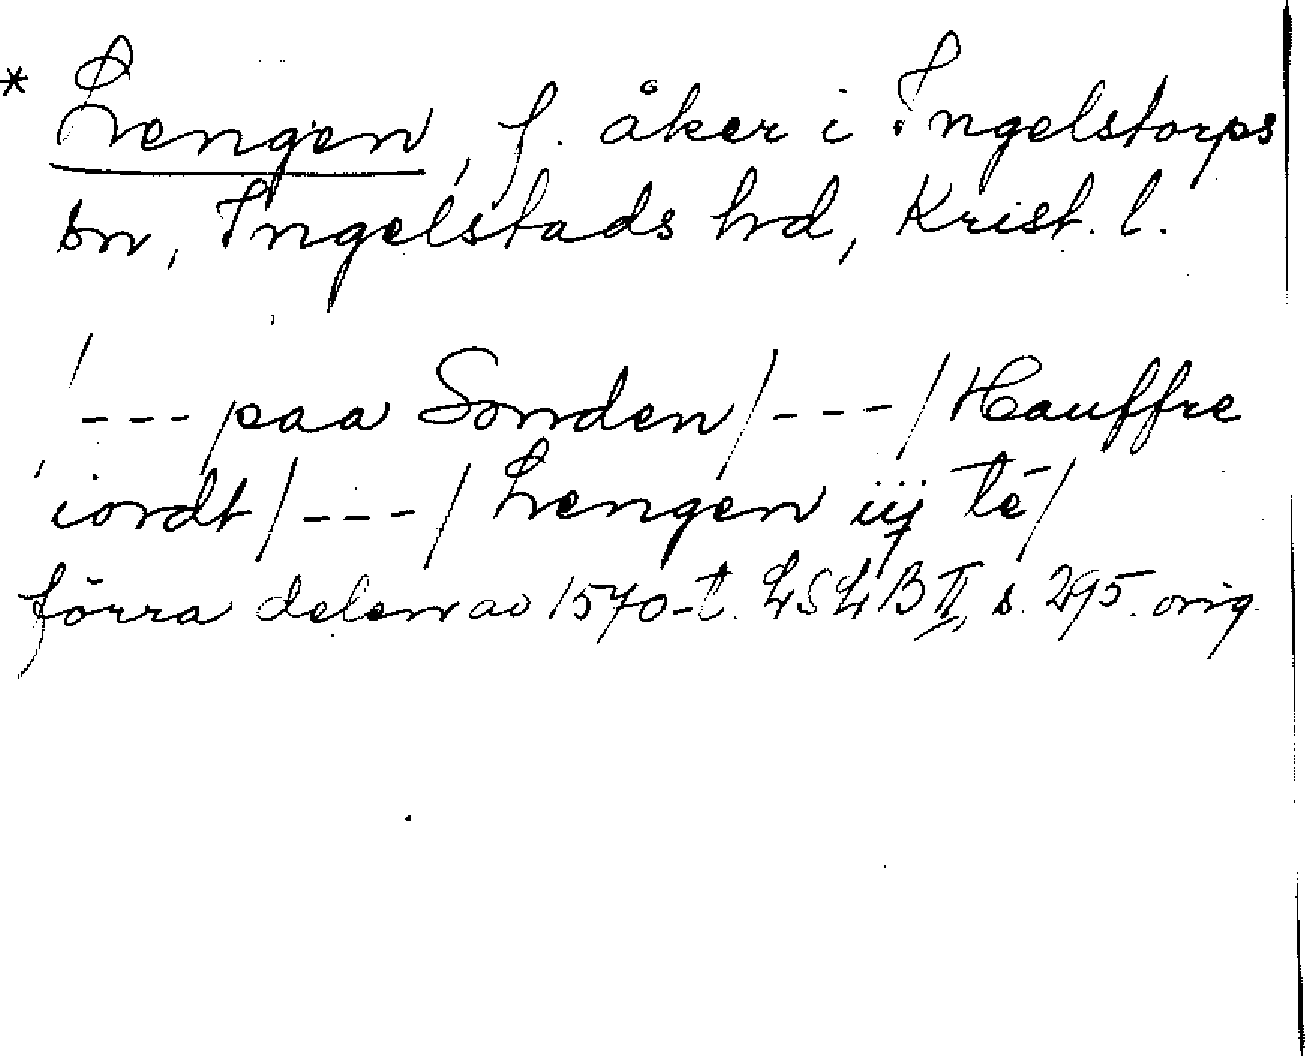 * Lengen, f. åker i Ingelstorps
sn, Ingelstads hd, Krist. l.
/--- paa Sonden/---/Hauffre
iordt/---/Lengen iij te/
förra delen av 1570-t. LSLB II, s. 295. orig